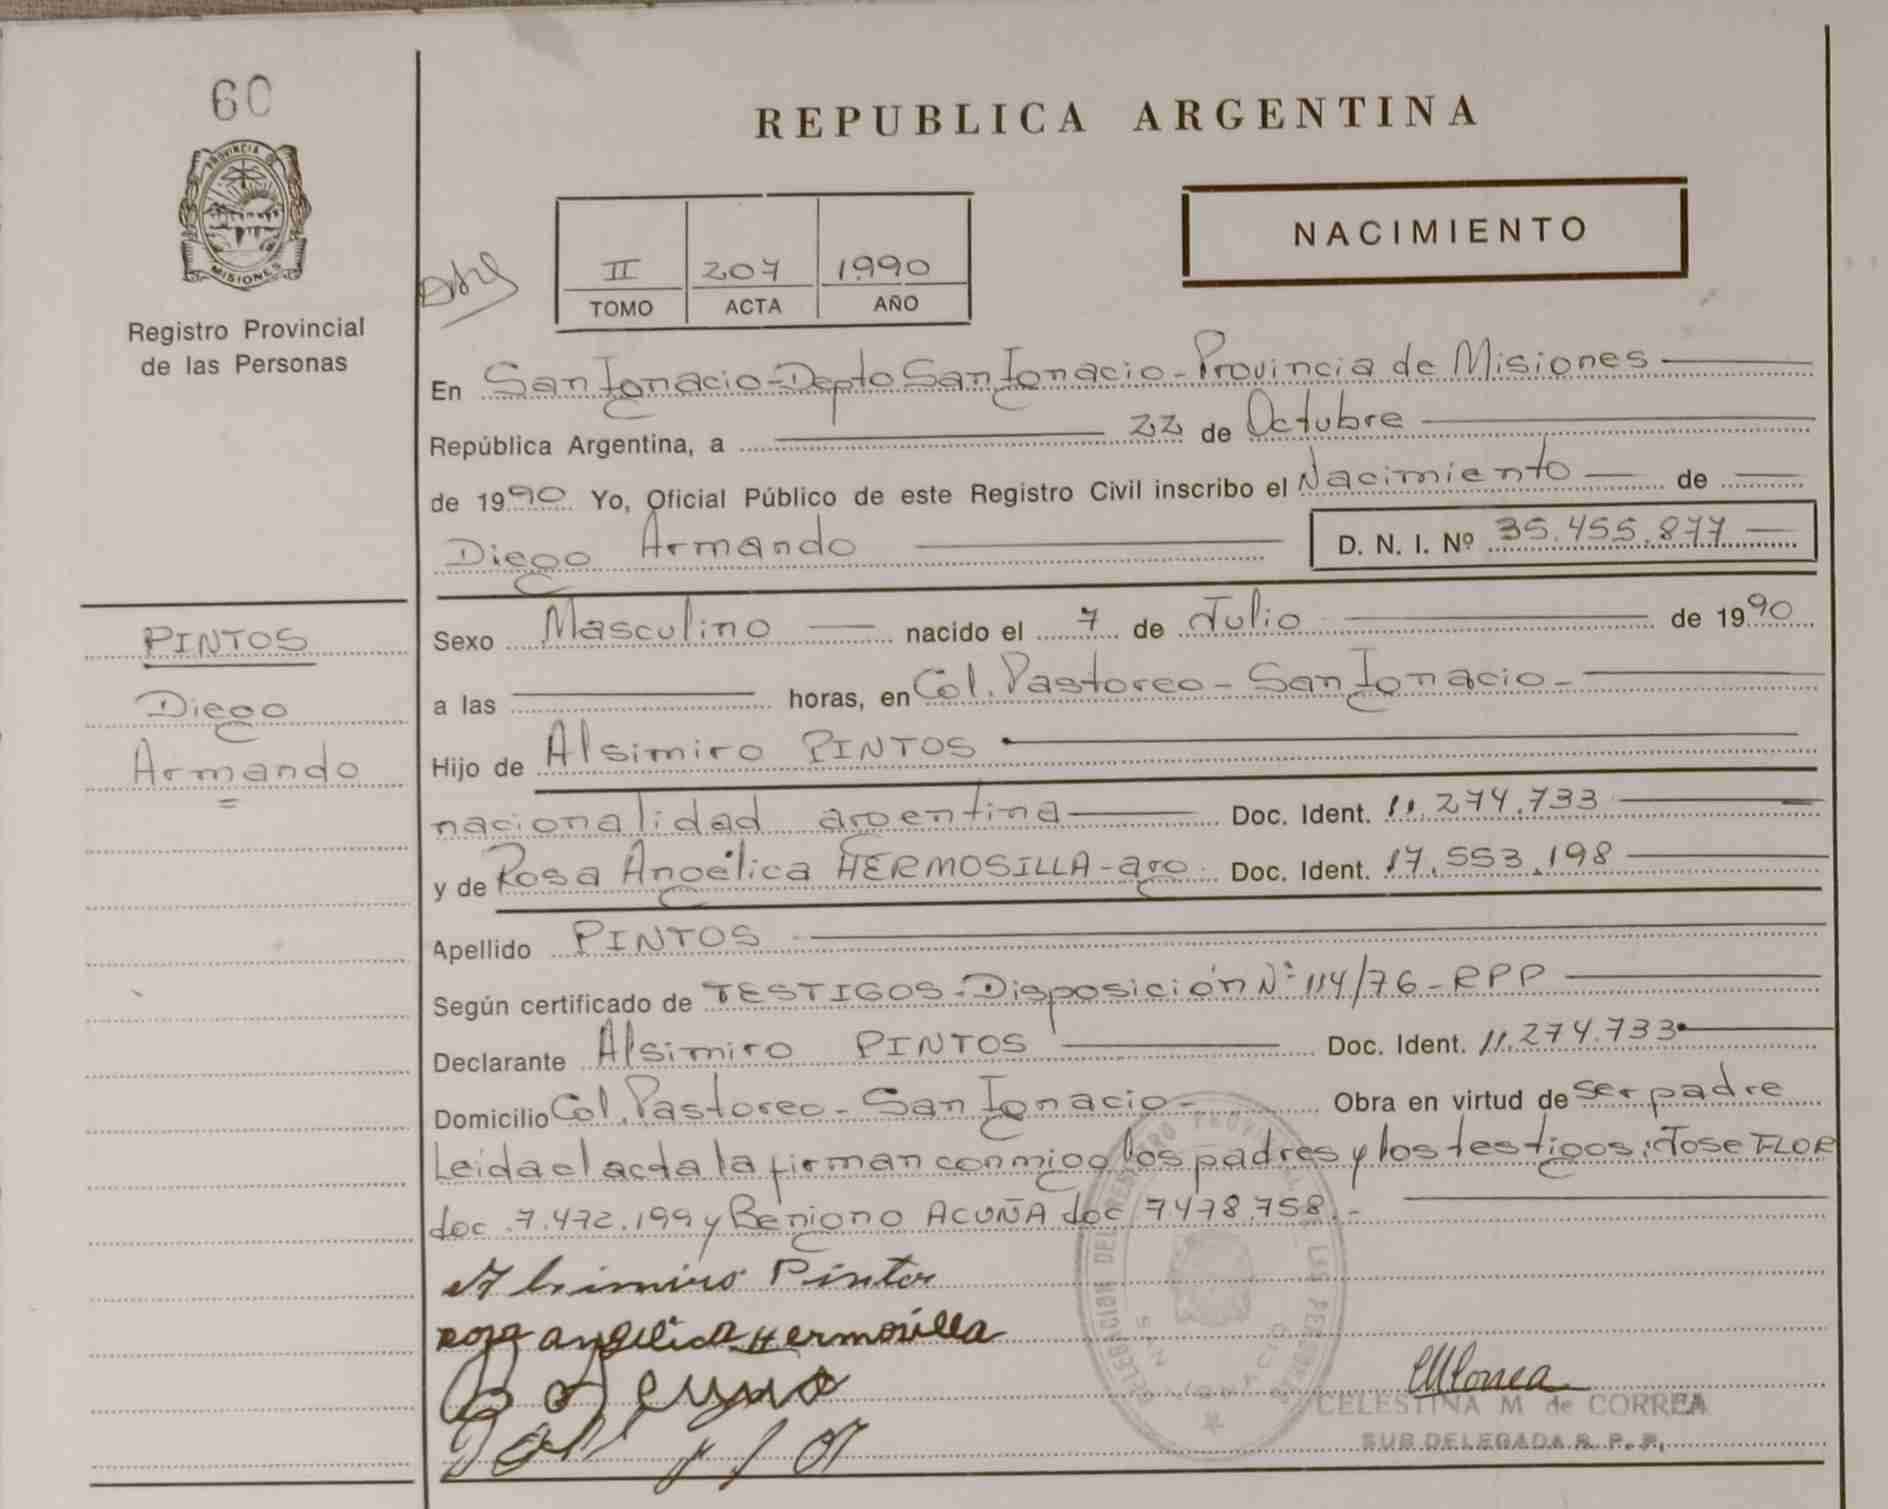 60
PROVINCIA DE
MISIONES
Registro Provincial
de las Personas
PINTOS
Diego
Armando
REPUBLICA ARGENTINA
NACIMIENTO
II 207 1990
TOMO ACTA AÑO
En San Ignacio-Depto San Ignacio-Provincia de Misiones
República Argentina, a 22 de Octubre
de 1990 Yo, Oficial Público de este Registro Civil inscribo el Nacimiento de
Diego Armando D. N. I. Nº 35.455.877
Sexo Masculino nacido el 7 de Julio de 1990
a las horas, en Col. Pastoreo - San Ignacio-
Hijo de Alsimiro PINTOS
nacionalidad argentina Doc. Ident. 11.274.733
y de Rosa Angélica HERMOSILLA-arg. Doc. Ident. 17.553.198
Apellido PINTOS
Según certificado de TESTIGOS-Disposición Nº 114/76-RPP
Declarante Alsimiro PINTOS Doc. Ident. 11.274.733
Domicilio Col. Pastoreo - San Ignacio- Obra en virtud de ser padre
Leida el acta la firman conmigo los padres y los testigos: Jose FLOR
doc. 7.472.199 y Benigno ACUÑA doc 7.478.758.-
Alsimiro Pintos
rosa angélica Hermosilla
DELEGACION DEL REGISTRO PROVINCIAL DE LAS PERSONAS
SAN IGNACIO
CELESTINA M de CORREA
SUB DELEGADA R. P. P.